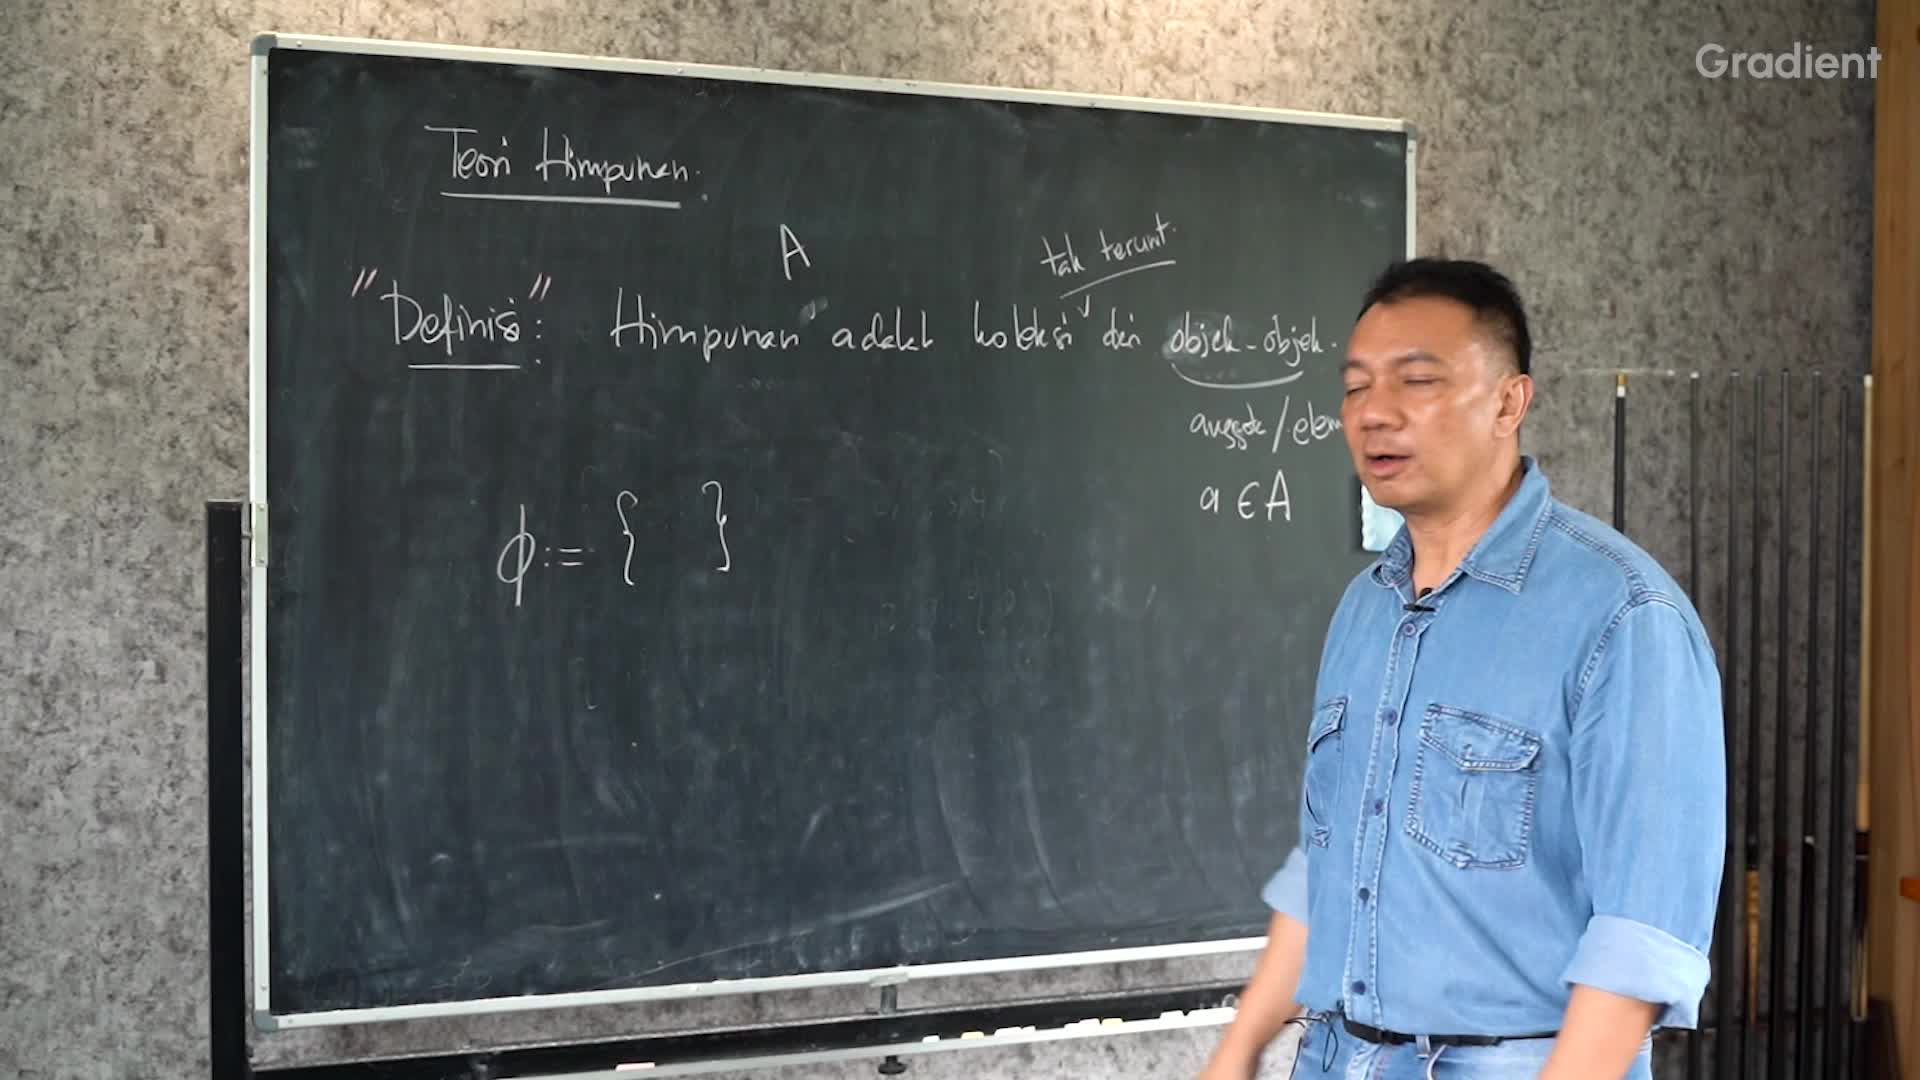 Gradient
Teori Himpunan.
A
tak terurut.
"Definisi": Himpunan adalah koleksi dari objek-objek.
anggota/elem
a ∈ A
ϕ := { }